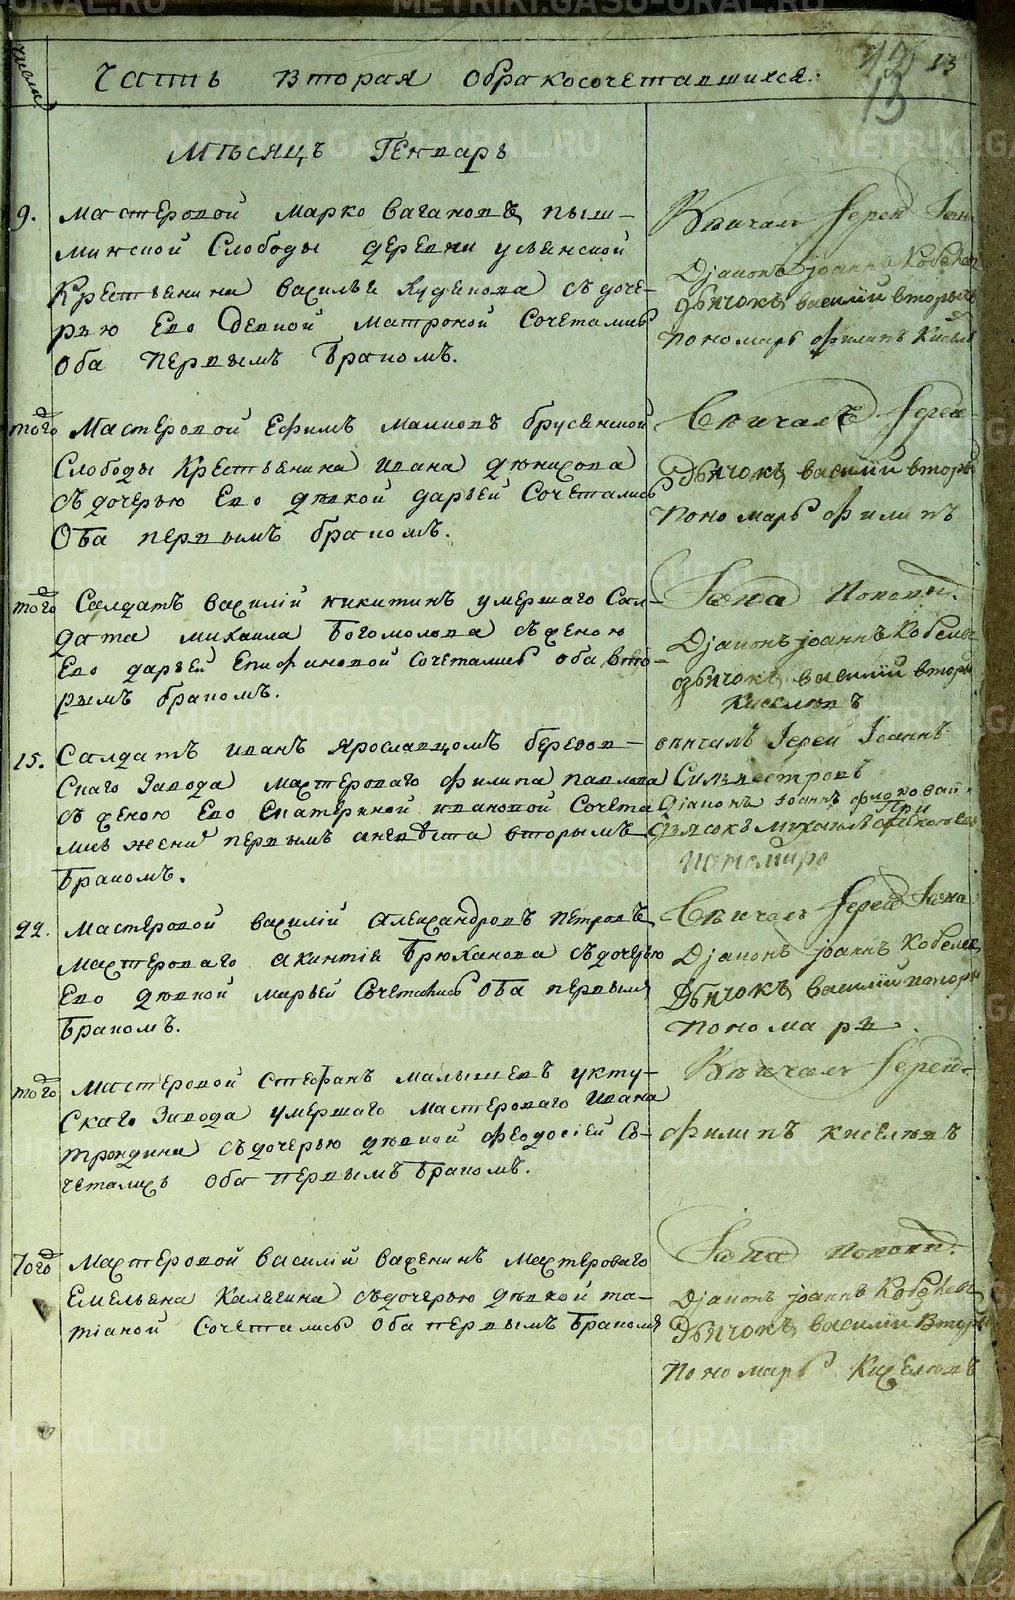 числа
Часть Вторая Обракосочетавшихся. 13
13
Мѣсяцъ Генварь
9. Мастеровой Марко Вагановъ пыш-
минской Слободы деревни усьянской
Крестьянина Василья Кудинова съ доче-
рью Ево Девкой Матроной Сочетались
Оба первымъ бракомъ.
Вѣнчалъ Іерей Іона
Діаконъ Іоаннъ Кобелев
дьячокъ василій вторы
пономарь филипъ Кисел
того д Мастеровой Ефимъ Брусенской
Слободы Крестьянина Ивана
съ дочерью Ево дѣвкой дарьей Сочетались
Оба первымъ бракомъ.
Вѣнчалъ Іерей
Дьячокъ василій вторы
Пономарь Филипъ
того д Салдатъ василій никитинъ умершаго Сал-
дата михаила Богомолова съ женою
Ево дарьей Епифановой сочетались оба вто-
рымъ бракомъ.
Іона Поповъ.
Діаконъ Іоаннъ Кобелев
дьячокъ василій вторы
Киселювъ
15. Салдатъ иванъ Ярославцомъ березов-
скаго Завода мастероваго филипа павлова
съ женою Ево Екатериной ивановой Сочета
лись жени первымъ аневѣста вторымъ
Бракомъ.
вѣнчалъ Іерей Іоаннъ
Сильвестровъ
Діаконъ Іоаннъ
При
пономаре
22. Мастеровой василій Александровъ петровъ
мастероваго акинтія Брюханова съ дочерью
Ево дѣвкой марьей Сочетались Оба первымъ
Бракомъ.
Вѣнчалъ Іерей Іона
Діаконъ Іоаннъ Кобелев
Дьячокъ василій вторы
пономаръ
того д Мастеровой Стефанъ малышевъ укту-
скаго Завода умершаго мастероваго Ивана
съ дочерью дѣвкой феодосіей Со-
четались Оба первымъ Бракомъ.
Вѣнчалъ Іерей
Филипъ Киселювъ
Того д Мастеровой василій важенинъ мастероваго
Емельяна Калегина съ дочерью дѣвкой та-
тіаной Сочетались Оба первымъ Бракомъ
Іона Поповъ.
Діаконъ Іоаннъ Кобелевъ
Дьячокъ василій Вторы
Пономарь Киселювъ
METRIKI.GASO-URAL.RU